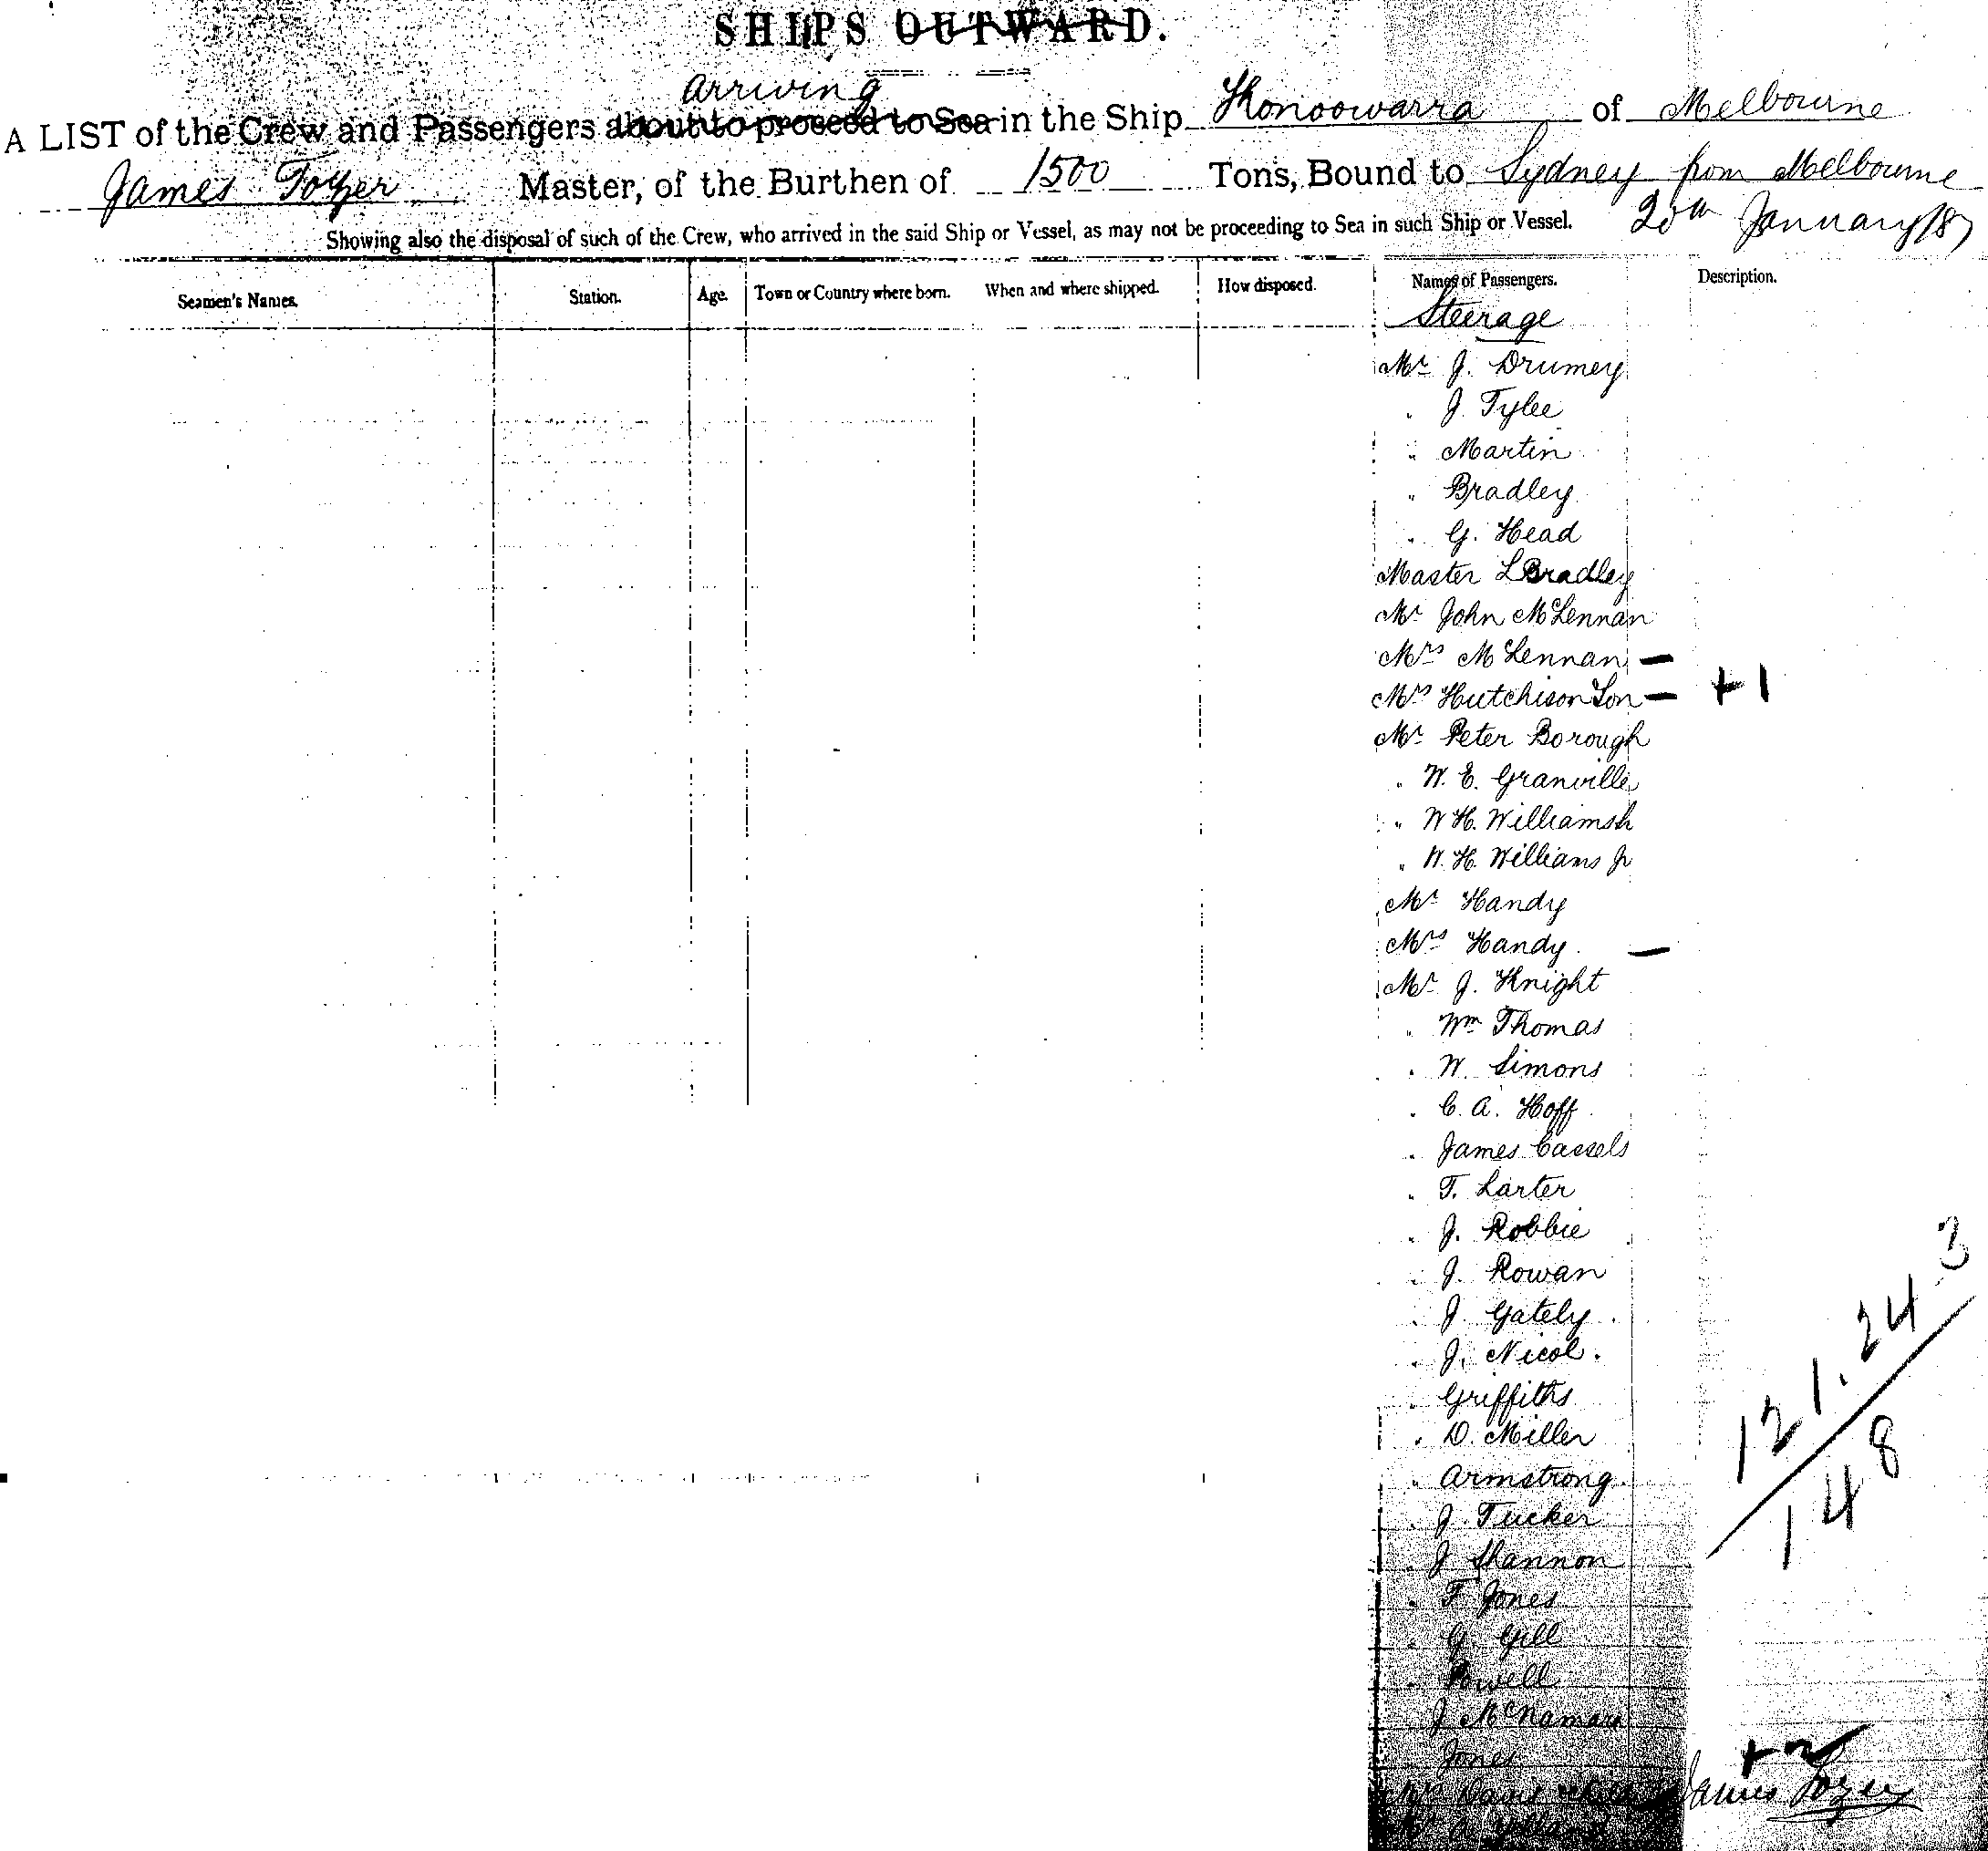 SHIPS OUTWARD.
arriving
A LIST of the Crew and Passengers about to proceed to Sea in the Ship Konoowarra of Melbourne
James Tozer Master, of the Burthen of 1500 Tons, Bound to Sydney from Melbourne
Showing also the disposal of such of the Crew, who arrived in the said Ship or Vessel, as may not be proceeding to Sea in such Ship or Vessel. 20th January/87
Seamen's Names. Station. Age. Town or Country where born. When and where shipped. How disposed. Names of Passengers. Description.
Steerage
Mr J. Drumey
" J. Tylee
" Martin
" Bradley
" G. Head
Master L Bradley
Mr John McLennan
Mrs McLennan —
Mrs Hutchison Son — + 1
Mr Peter Borough
" W. E. Granville
" W H. Williams Sr
" W. H. Williams Jr
Mr Handy
Mrs Handy —
Mr J. Knight
" Wm Thomas
" W. Simons
" C. A. Hoff
" James Cassels
" T. Larter
" J. Robbie
" J. Rowan
" J. Gately
" J. Nicol.
" Griffiths
" D. Miller
" Armstrong
" J. Tucker
" J Shannon
" F Jones
" G. Gill
" Powell
J McNamara
Jones
Mrs Davis child
A
121. 24 3
148
+ 2
James Tozer